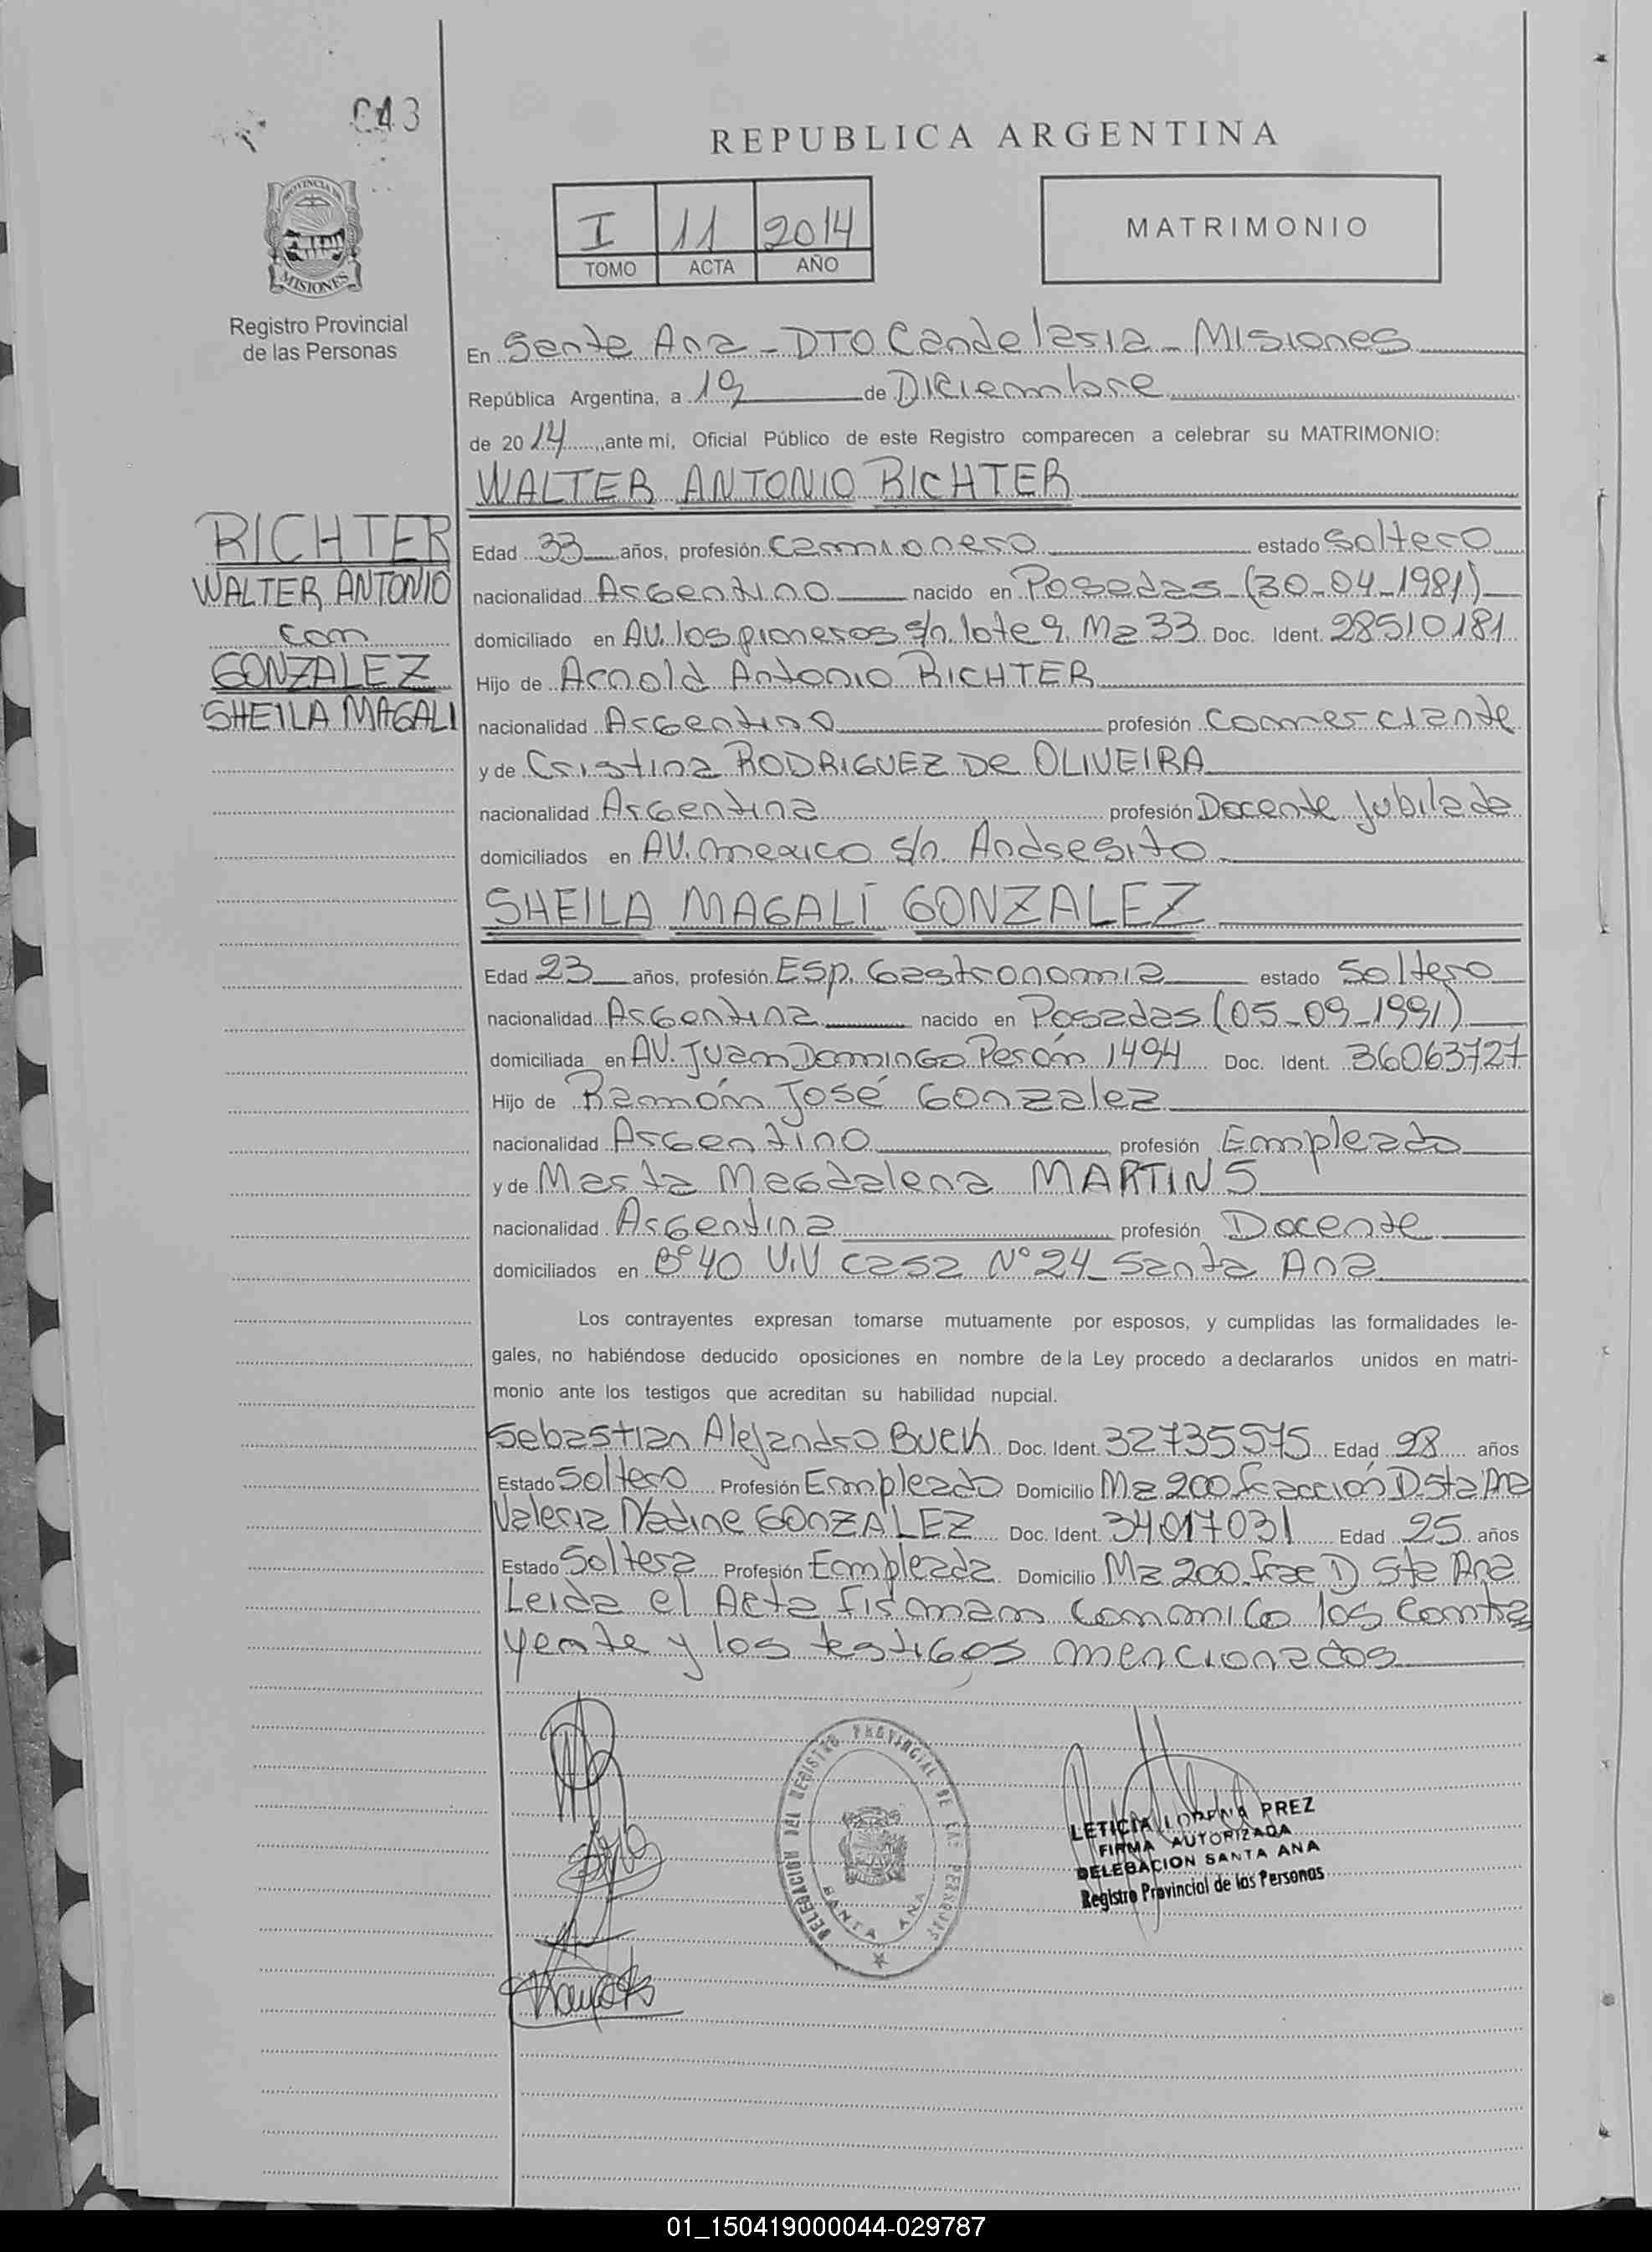 043
REPUBLICA ARGENTINA
PROVINCIA DE
MISIONES
Registro Provincial
de las Personas
I 11 2014
TOMO ACTA AÑO
MATRIMONIO
En Santa Ana - DTO Candelaria - Misiones
República Argentina, a 19 de Diciembre
de 2014, ante mi, Oficial Público de este Registro comparecen a celebrar su MATRIMONIO:
WALTER ANTONIO RICHTER
RICHTER
WALTER ANTONIO
con
GONZALEZ
SHEILA MAGALI
Edad 33 años, profesión Camionero estado Soltero
nacionalidad Argentino nacido en Posadas (30-04-1981)
domiciliado en AV. los pioneros s/n lote 9 Mz 33 Doc. Ident. 28510181
Hijo de Arnold Antonio RICHTER
nacionalidad Argentino profesión Comerciante
y de Cristina RODRIGUEZ DE OLIVEIRA
nacionalidad Argentina profesión Docente Jubilada
domiciliados en AV. mexico s/n. Andresito
SHEILA MAGALÍ GONZALEZ
Edad 23 años, profesión Esp. Gastronomia estado Soltero
nacionalidad Argentina nacido en Posadas (05-09-1991)
domiciliada en AV. Juan Domingo Perón 1494 Doc. Ident. 36063727
Hijo de Ramón José Gonzalez
nacionalidad Argentino profesión Empleado
y de Marta Magdalena MARTINS
nacionalidad Argentina profesión Docente
domiciliados en Bº 40 ViV casa Nº 24 Santa Ana
Los contrayentes expresan tomarse mutuamente por esposos, y cumplidas las formalidades le-
gales, no habiéndose deducido oposiciones en nombre de la Ley procedo a declararlos unidos en matri-
monio ante los testigos que acreditan su habilidad nupcial.
Sebastian Alejandro Buch Doc. Ident. 32735575 Edad 28 años
Estado Soltero Profesión Empleado Domicilio Mz 200 fracción D Sta Ana
Valeria Nadine GONZALEZ Doc. Ident. 34017031 Edad 25 años
Estado Soltera Profesión Empleada Domicilio Mz 200 frac D Sta Ana
Leida el Acta firman conmigo los contra
yente y los testigos mencionados
DELEGACION DEL REGISTRO PROVINCIAL DE LAS PERSONAS
SANTA ANA
LETICIA LORENA PREZ
FIRMA AUTORIZADA
DELEGACION SANTA ANA
Registro Provincial de las Personas
01_150419000044-029787